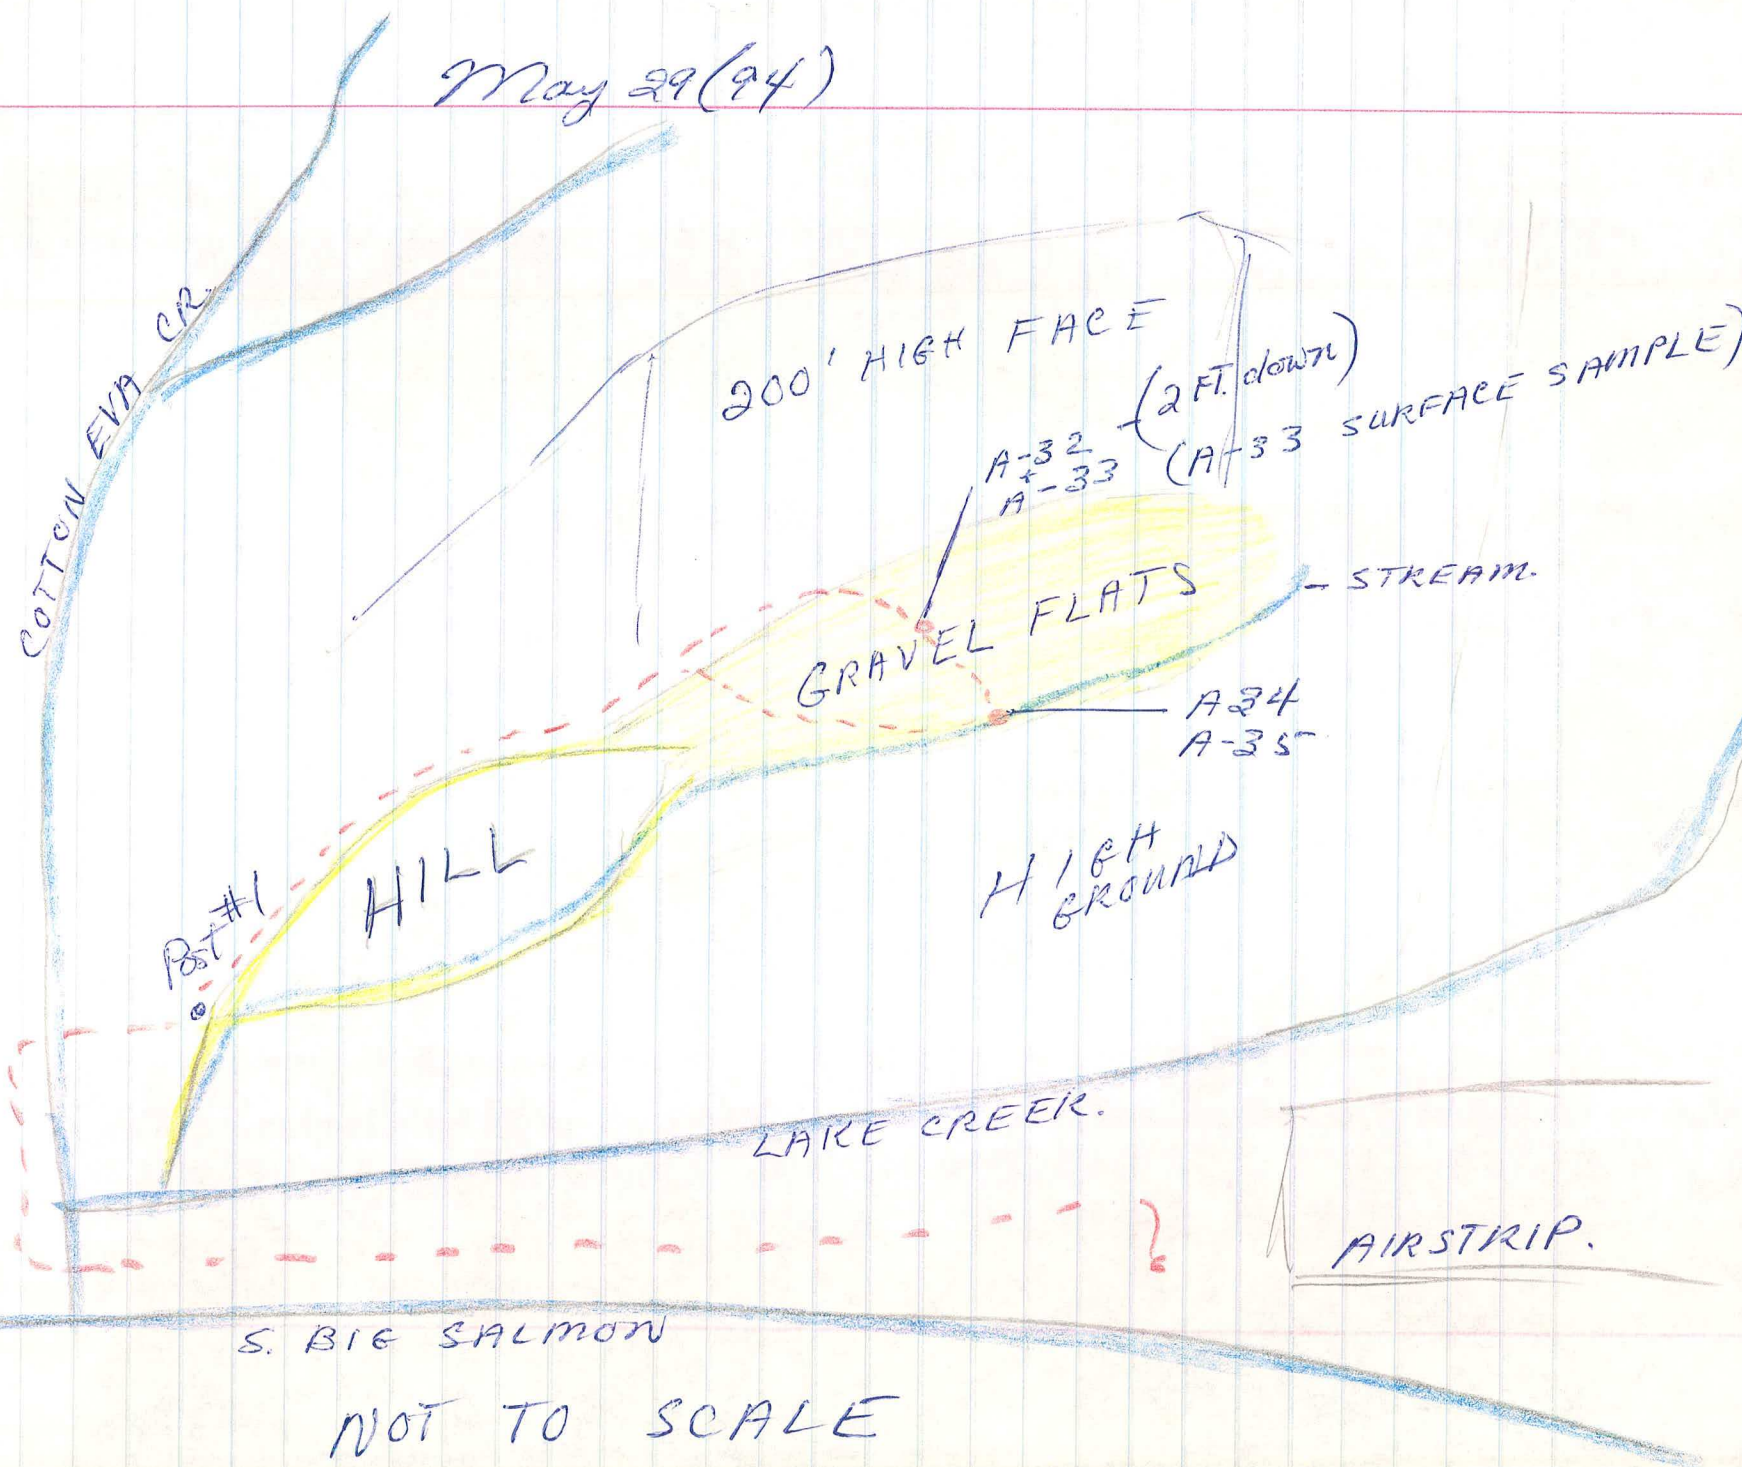 May 29 (94)
COTTON EVA CR.
200' HIGH FACE
A-32 - (2 FT. down)
+
A-33 (A-33 SURFACE SAMPLE)
GRAVEL FLATS
- STREAM.
A34
A-35
HILL
HIGH
GROUND
Post #1
LAKE CREEK.
AIRSTRIP.
S. BIG SALMON
NOT TO SCALE